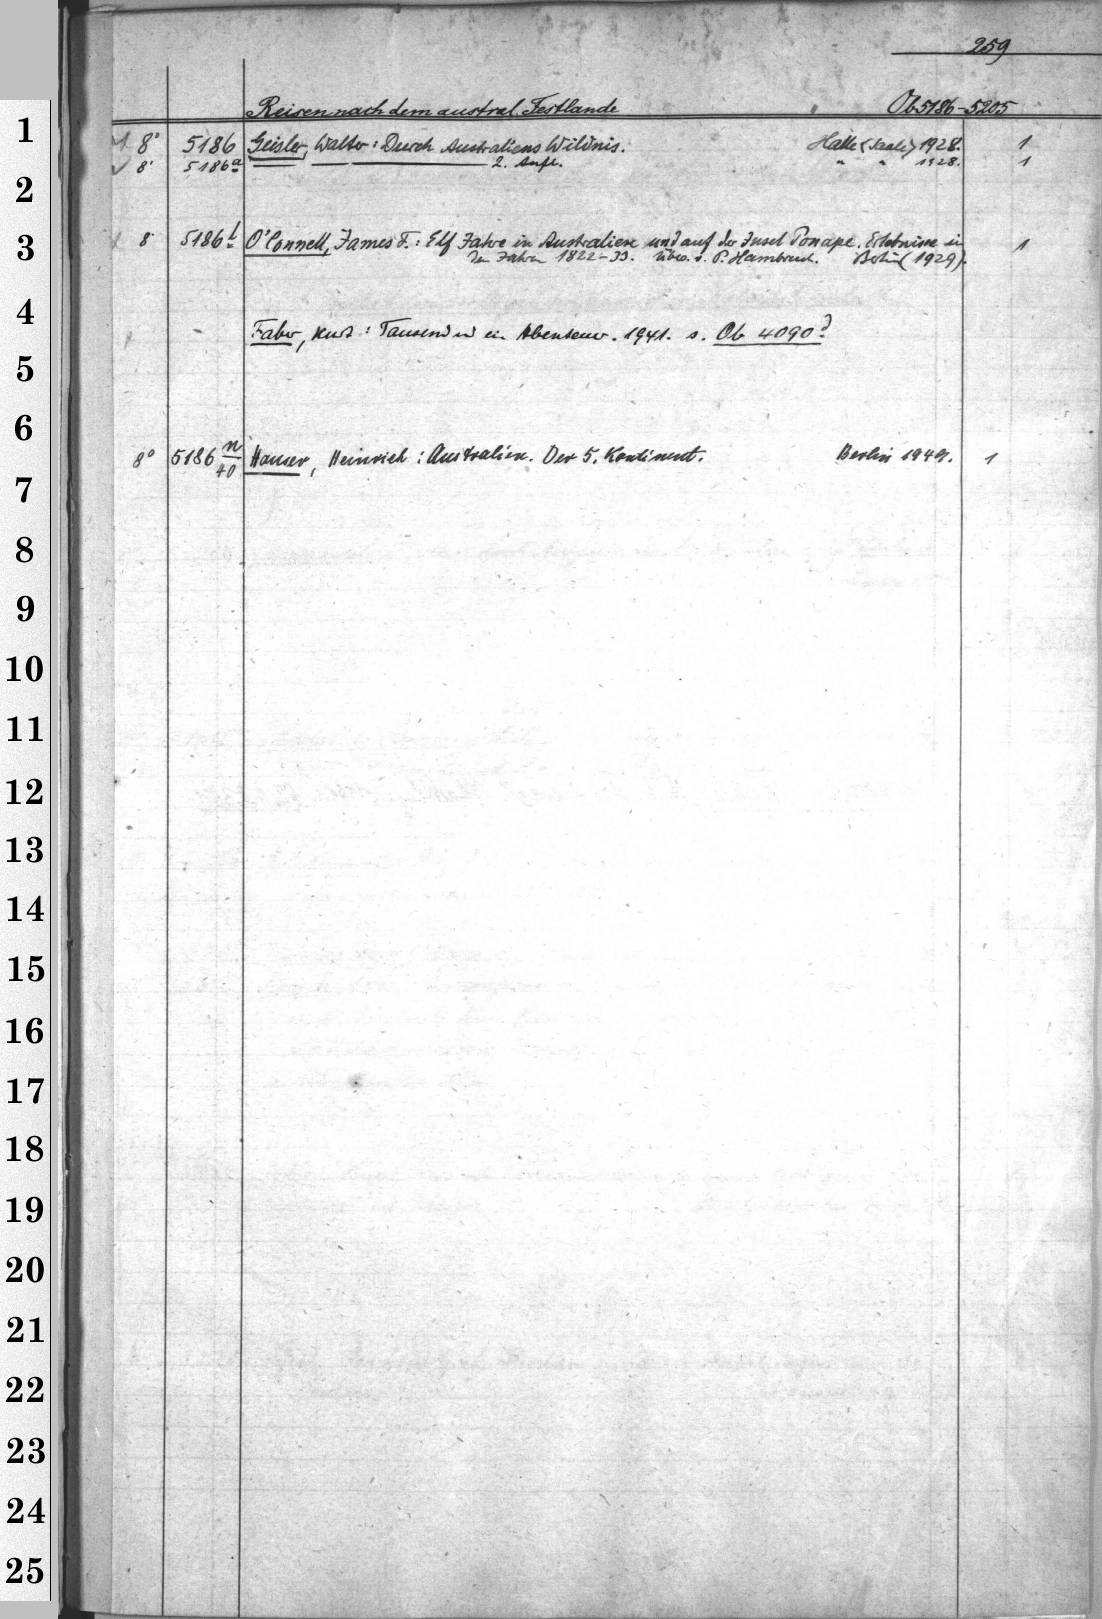 259
Reisen nach dem austral. Festlande Ob 5186-5205
1
8° 5186 Geisler, Walter: Durch Australiens Wildnis. Halle (Saale) 1928. 1
8° 5186a 2. Aufl. " " 1928. 1
2
3
8° 5186l O'Connell, James F.: Elf Jahre in Australien und auf der Insel Ponape. Erlebnisse in 1
den Jahren 1822-33. Übers. v. P. Hambruch. Berlin (1929).
4
Faber, Kurt: Tausend und ein Abenteuer. 1941. s. Ob 4090d
5
6
8° 5186 n/40 Hauser, Heinrich: Australien. Der 5. Kontinent. Berlin 1949. 1
7
8
9
10
11
12
13
14
15
16
17
18
19
20
21
22
23
24
25